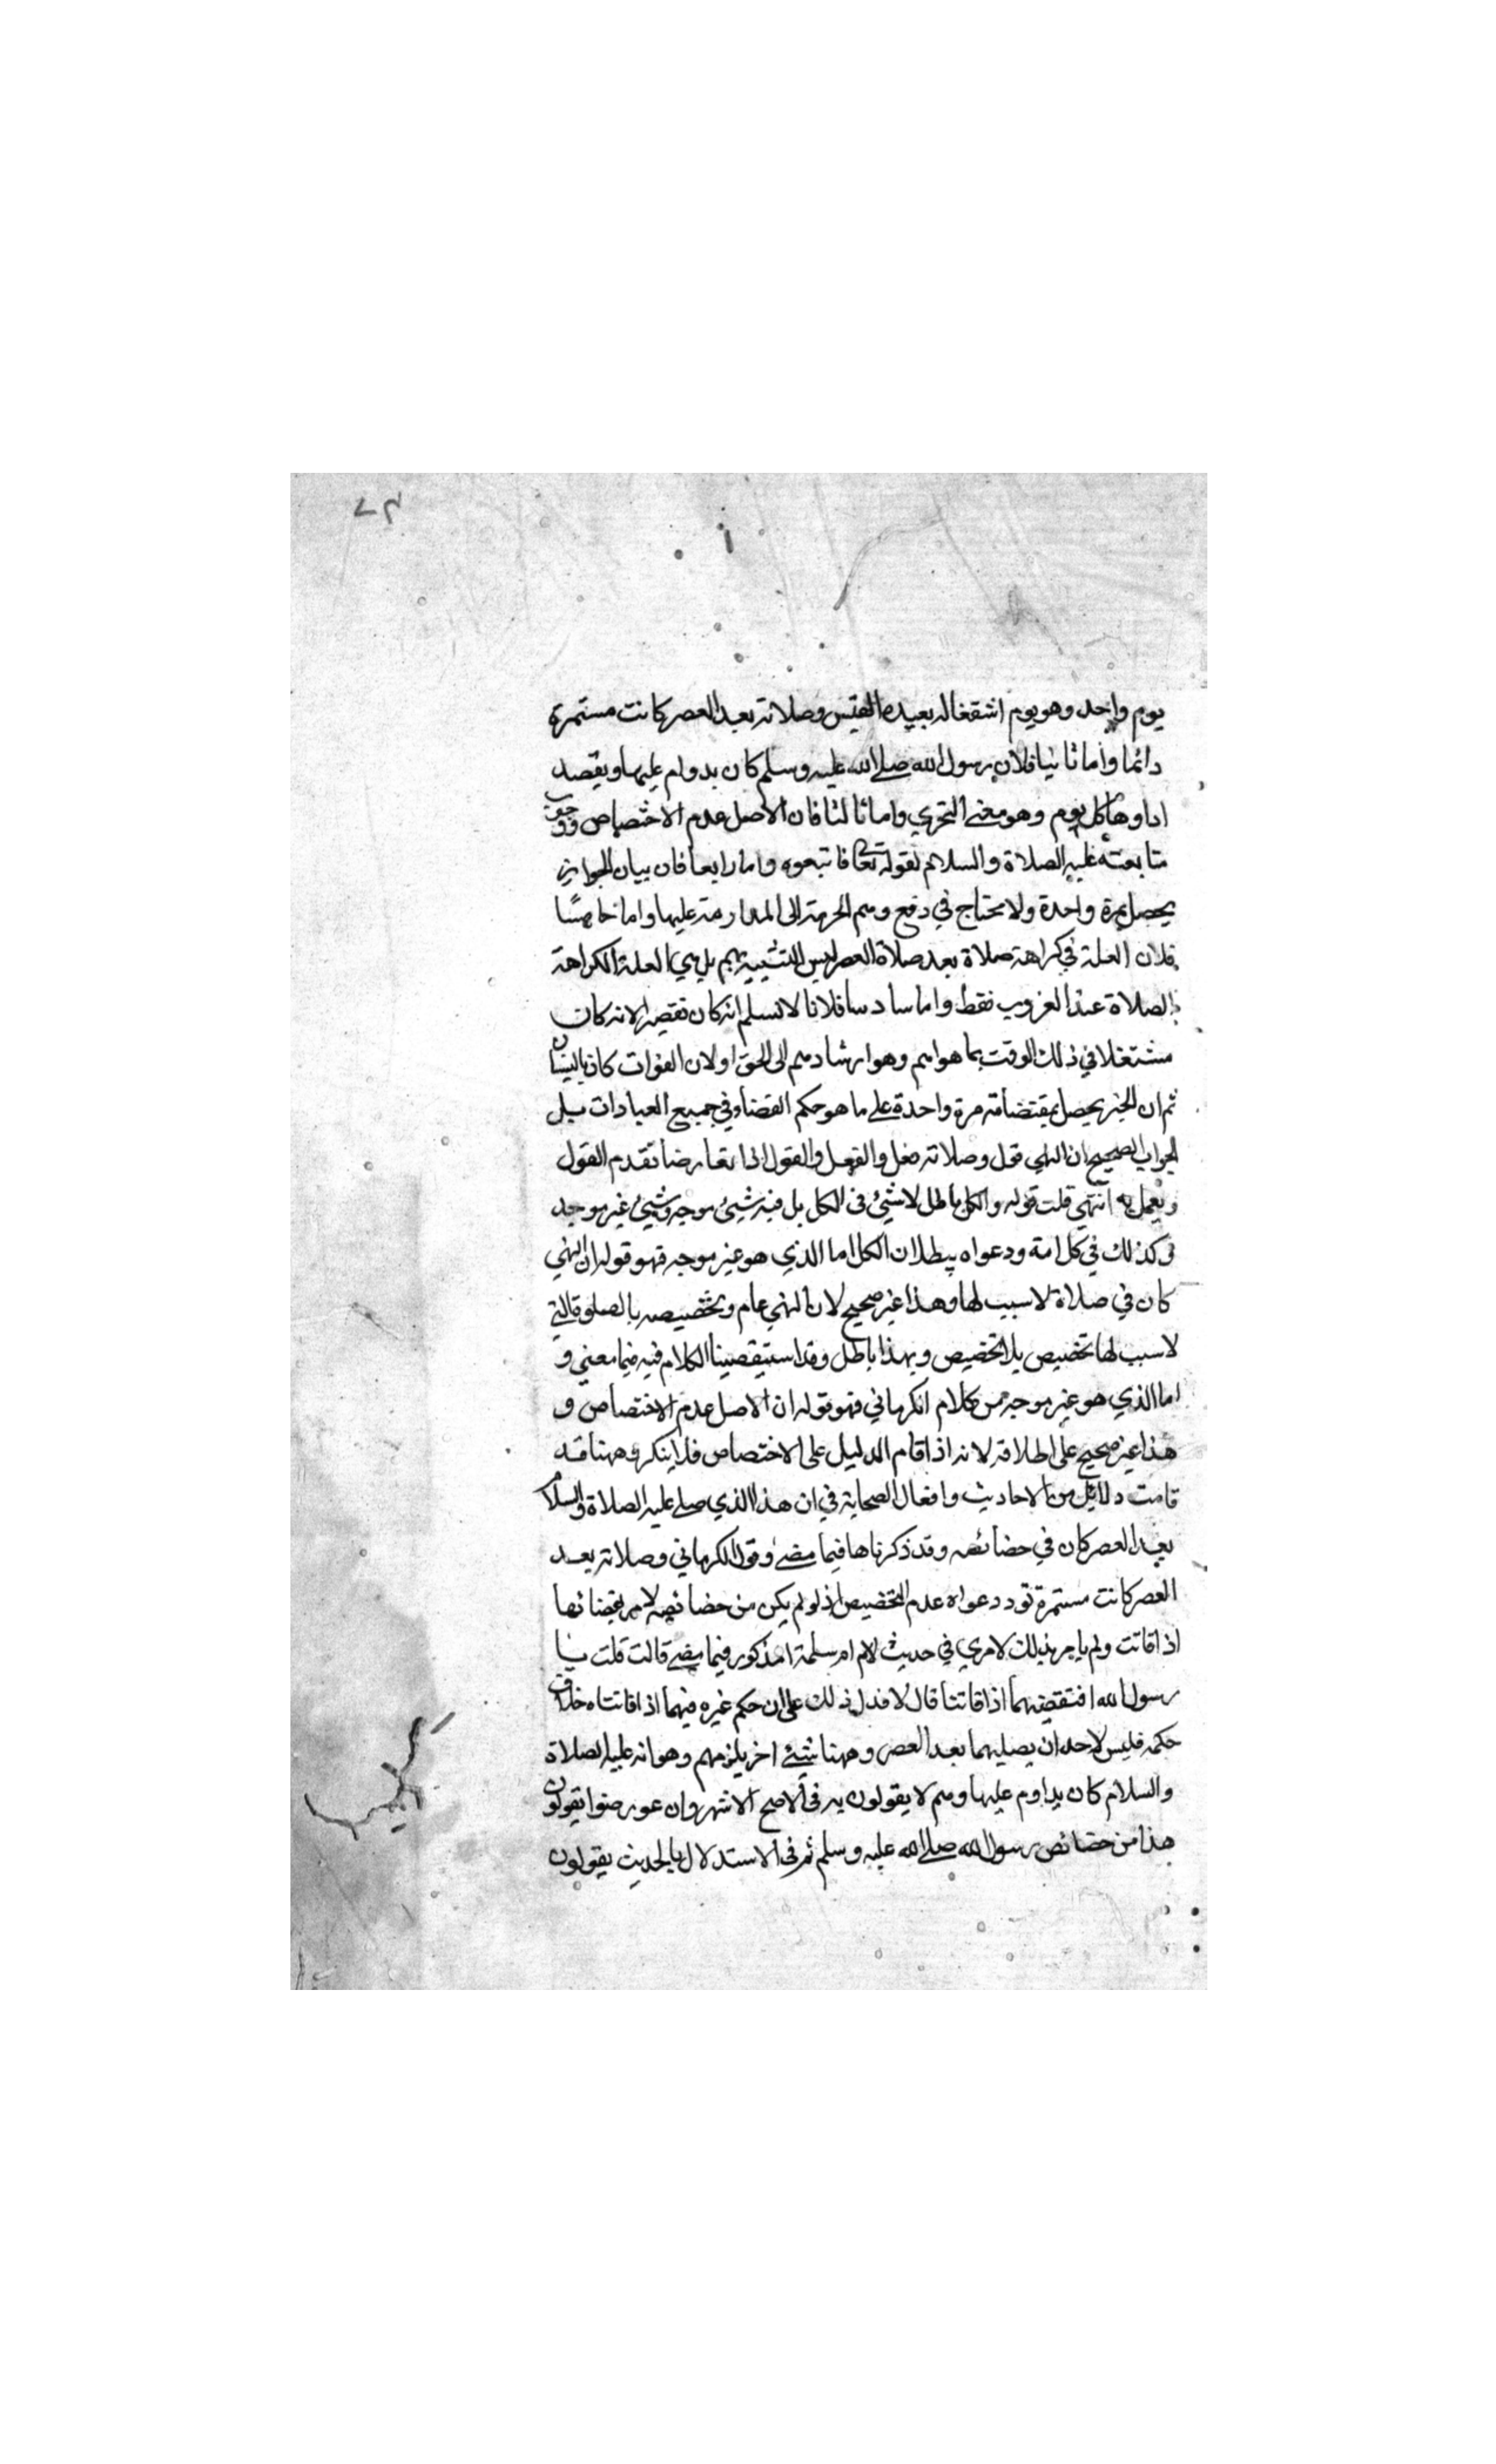 ٧٣
يوم واحد وهو يوم اشتغاله بعبد القيس وصلاته بعد العصر كانت مستمرة
دائما واما ثانيا فلان رسول الله صلي الله عليه وسلم كان يداوم عليها ويقصد
اداوها كل يوم وهو معني التحري واما ثالثا فان الاصل عدم الاختصاص ووجوب
متابعته عليه الصلاة والسلام لقوله تعالي فاتبعوه واما رابعا فان بيان الجواز
يحصل بمرة واحدة ولا يحتاج في دفع وهم الحرمة الى المداومة عليها واما خامسا
فلان العلة في كراهة صلاة بعد صلاة العصر ليس التشبيه بهم بل هي العلة الكراهة
الصلاة عند الغروب فقط واما سادسا فلانا لا نسلم انه كان تقصير لانه كان
مشتغلا في ذلك الوقت بما هو اهم وهو ارشادهم الى الحق او لان الفوات كان بالنسيان
ثم ان الجبر يحصل بقضائه مرة واحدة على ما هو حكم القضاء في جميع العبادات بل
الجواب الصحيح ان النهي قول وصلاته فعل والفعل والقول اذا تعارضا تقدم القول
ويعمل به انتهي قلت قوله والكل باطل لا شيئ في الكل بل فيه شيئ موجه وشيئ غير موجه
وكذلك في كلامه ودعواه ببطلان الكل اما الذي هو غير موجه فهو قوله ان النهي
كان في صلاة لا سبب لها وهذا غير صحيح لان النهي عام وتخصيصه بالصلوة التي
لا سبب لها تخصيص بلا تخصيص وبهذا باطل وقد استقصينا الكلام فيه فيما مضي و
اما الذي هو غير موجه من كلام الكرماني فهو قوله ان الاصل عدم الاختصاص و
هذا غير صحيح على اطلاقه لانه اذا قام الدليل على الاختصاص فلا ينكر وههنا قد
قامت دلائل من الاحاديث وافعال الصحابة في ان هذا الذي صلي عليه الصلاة والسلام
بعد العصر كان في خصائصه وقد ذكرناها فيما مضي وقول الكرماني وصلاته بعد
العصر كانت مستمرة ترد دعواه عدم التخصيص اذ لو لم يكن من خصائصه لامر بقضائها
اذا فاتت ولم يامر بذلك في حديث ام سلمة المذكور فيما مضي قالت قلت يا
رسول الله افنقضيهما اذا فاتتا قال لا فدل ذلك على ان حكم غيره فيهما اذا فاتتاه خلاف
حكمه فليس لاحد ان يصليهما بعد العصر وههنا شيئ اخر يلزمهم وهو انه عليه الصلاة
والسلام كان يداوم عليها وهم لا يقولون به في الاصح الاشهر وان عورضوا يقولون
هذا من خصائص رسول الله صلي الله عليه وسلم ثم في الاستدلال بالحديث يقولون